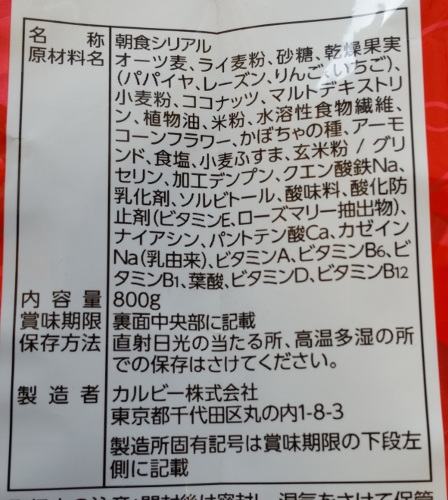 名称 朝食シリアル
原材料名 オーツ麦、ライ麦粉、砂糖、乾燥果実
(パパイヤ、レーズン、りんご、いちご)、
小麦粉、ココナッツ、マルトデキストリ
ン、植物油、米粉、水溶性食物繊維、
コーンフラワー、かぼちゃの種、アーモ
ンド、食塩、小麦ふすま、玄米粉 / グリ
セリン、加工デンプン、クエン酸鉄Na、
乳化剤、ソルビトール、酸味料、酸化防
止剤(ビタミンE、ローズマリー抽出物)、
ナイアシン、パントテン酸Ca、カゼイン
Na(乳由来)、ビタミンA、ビタミンB6、ビ
タミンB1、葉酸、ビタミンD、ビタミンB12
内容量 800g
賞味期限 裏面中央部に記載
保存方法 直射日光の当たる所、高温多湿の所
での保存はさけてください。
製造者 カルビー株式会社
東京都千代田区丸の内1-8-3
製造所固有記号は賞味期限の下段左
側に記載